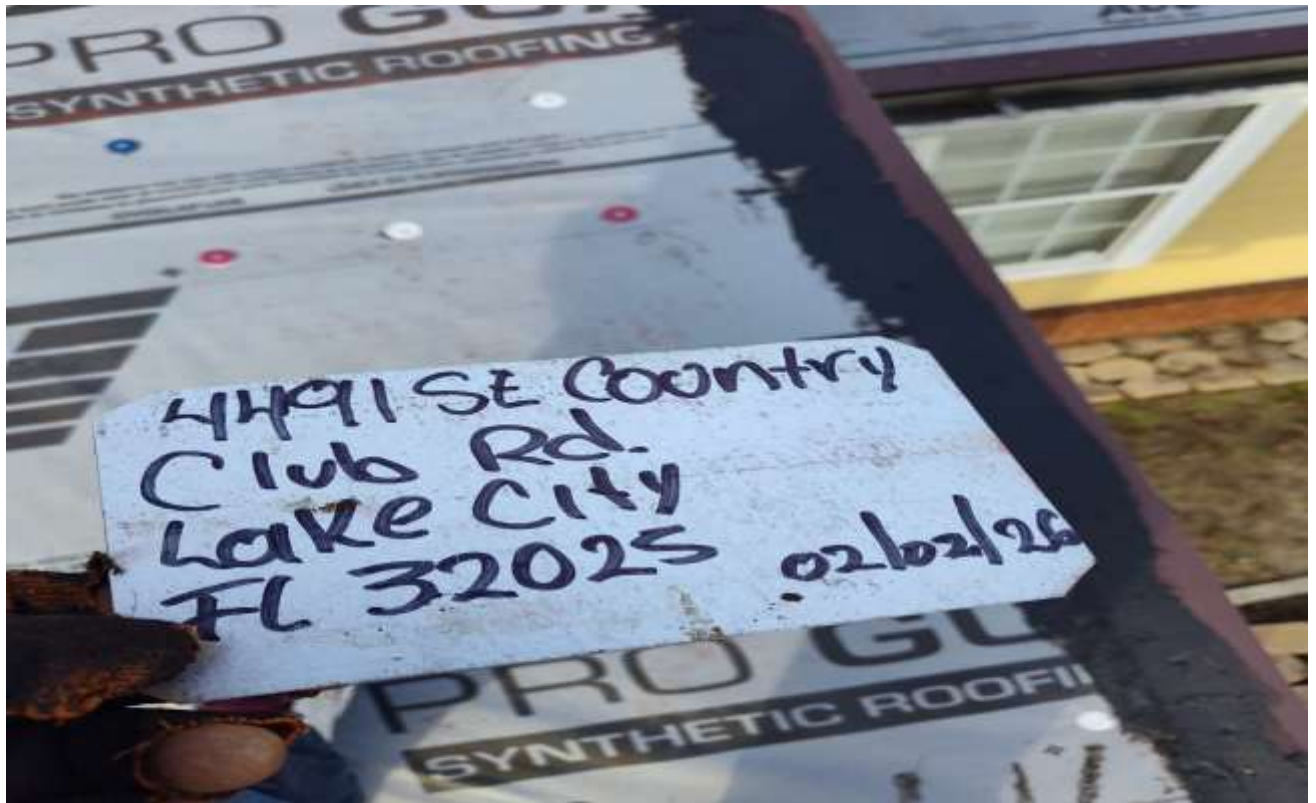 PRO GUA
SYNTHETIC ROOFING
4491 SE Country
Club Rd.
Lake City
FL 32025 02/02/26
PRO GU
SYNTHETIC ROOFI